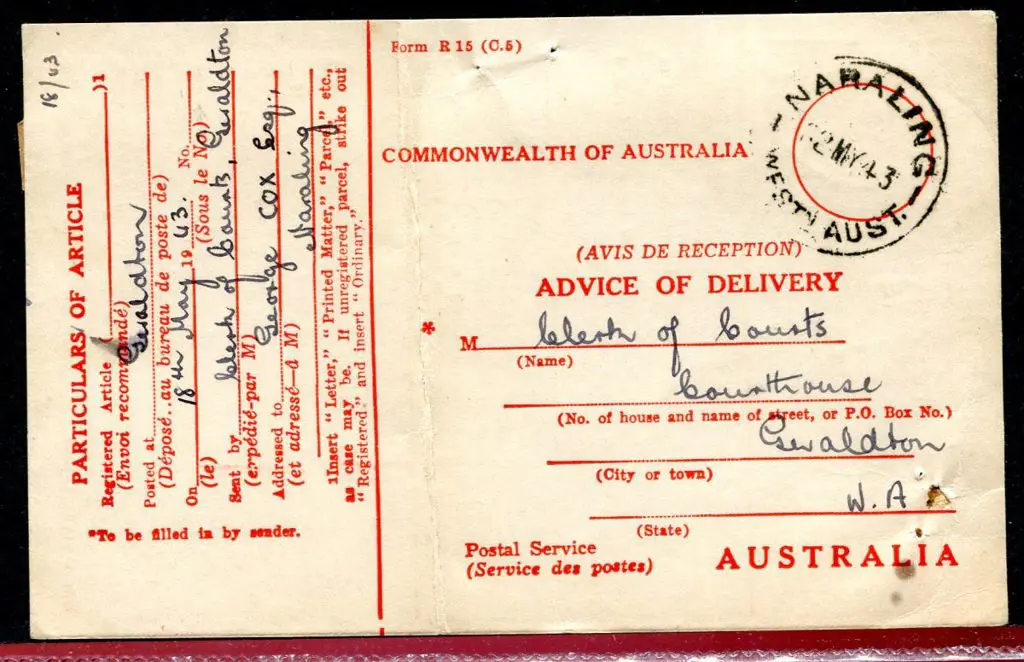 18/43
PARTICULARS OF ARTICLE
Registered Article ( )1
(Envoi recommandé)
Posted at Geraldton
(Déposé..au bureau de poste de)
On 18th May 19 43. No.
(le) (Sous le No)
Sent by Clerk of Courts, Geraldton
(expédié-par M)
Addressed to George COX Esq.,
(et adressé—à M) Naraling
1Insert "Letter," "Printed Matter," "Parcel," etc.,
as case may be. If unregistered parcel, strike out
"Registered" and insert "Ordinary."
*To be filled in by sender.
Form R 15 (C.5)
COMMONWEALTH OF AUSTRALIA
NARALING
22 MY 43
WESTN AUST.
(AVIS DE RECEPTION)
ADVICE OF DELIVERY
* M Clerk of Courts
(Name)
Courthouse
(No. of house and name of street, or P.O. Box No.)
Geraldton
(City or town)
W.A
(State)
Postal Service
(Service des postes)
AUSTRALIA